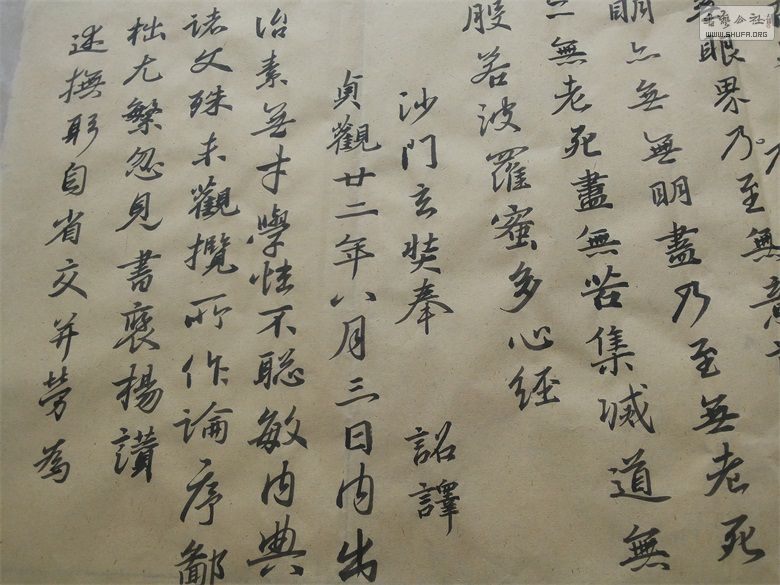 眼界乃至無意
明亦無無明盡乃至無老死
亦無老死盡無苦集滅道無
般若波羅蜜多心經
沙門玄奘奉 詔譯
貞觀廿二年八月三日內出
治素無才學性不聰敏內典
諸文殊未觀攬所作論序鄙
拙尤繁忽見書褒揚讚
述撫躬自省交并勞為
書法公社
WWW.SHUFA.ORG